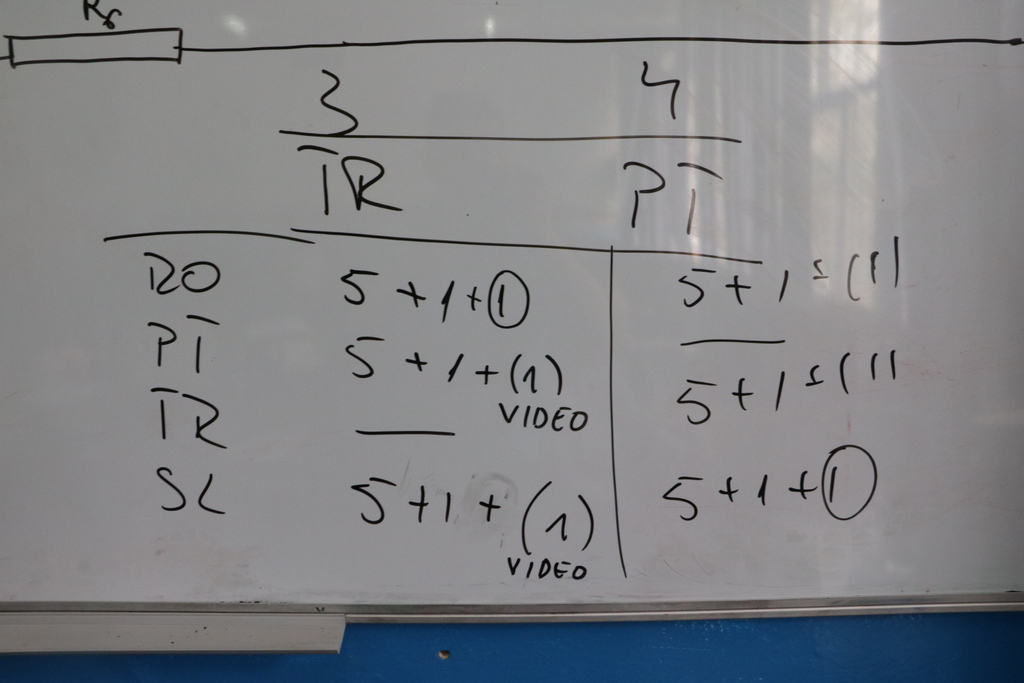 R6
3 4
TR PT
RO 5+1+① 5+1 ± (1)
PT 5+1+(1) —
VIDEO
TR — 5+1 ± (1)
SL 5+1+(1) 5+1+①
VIDEO